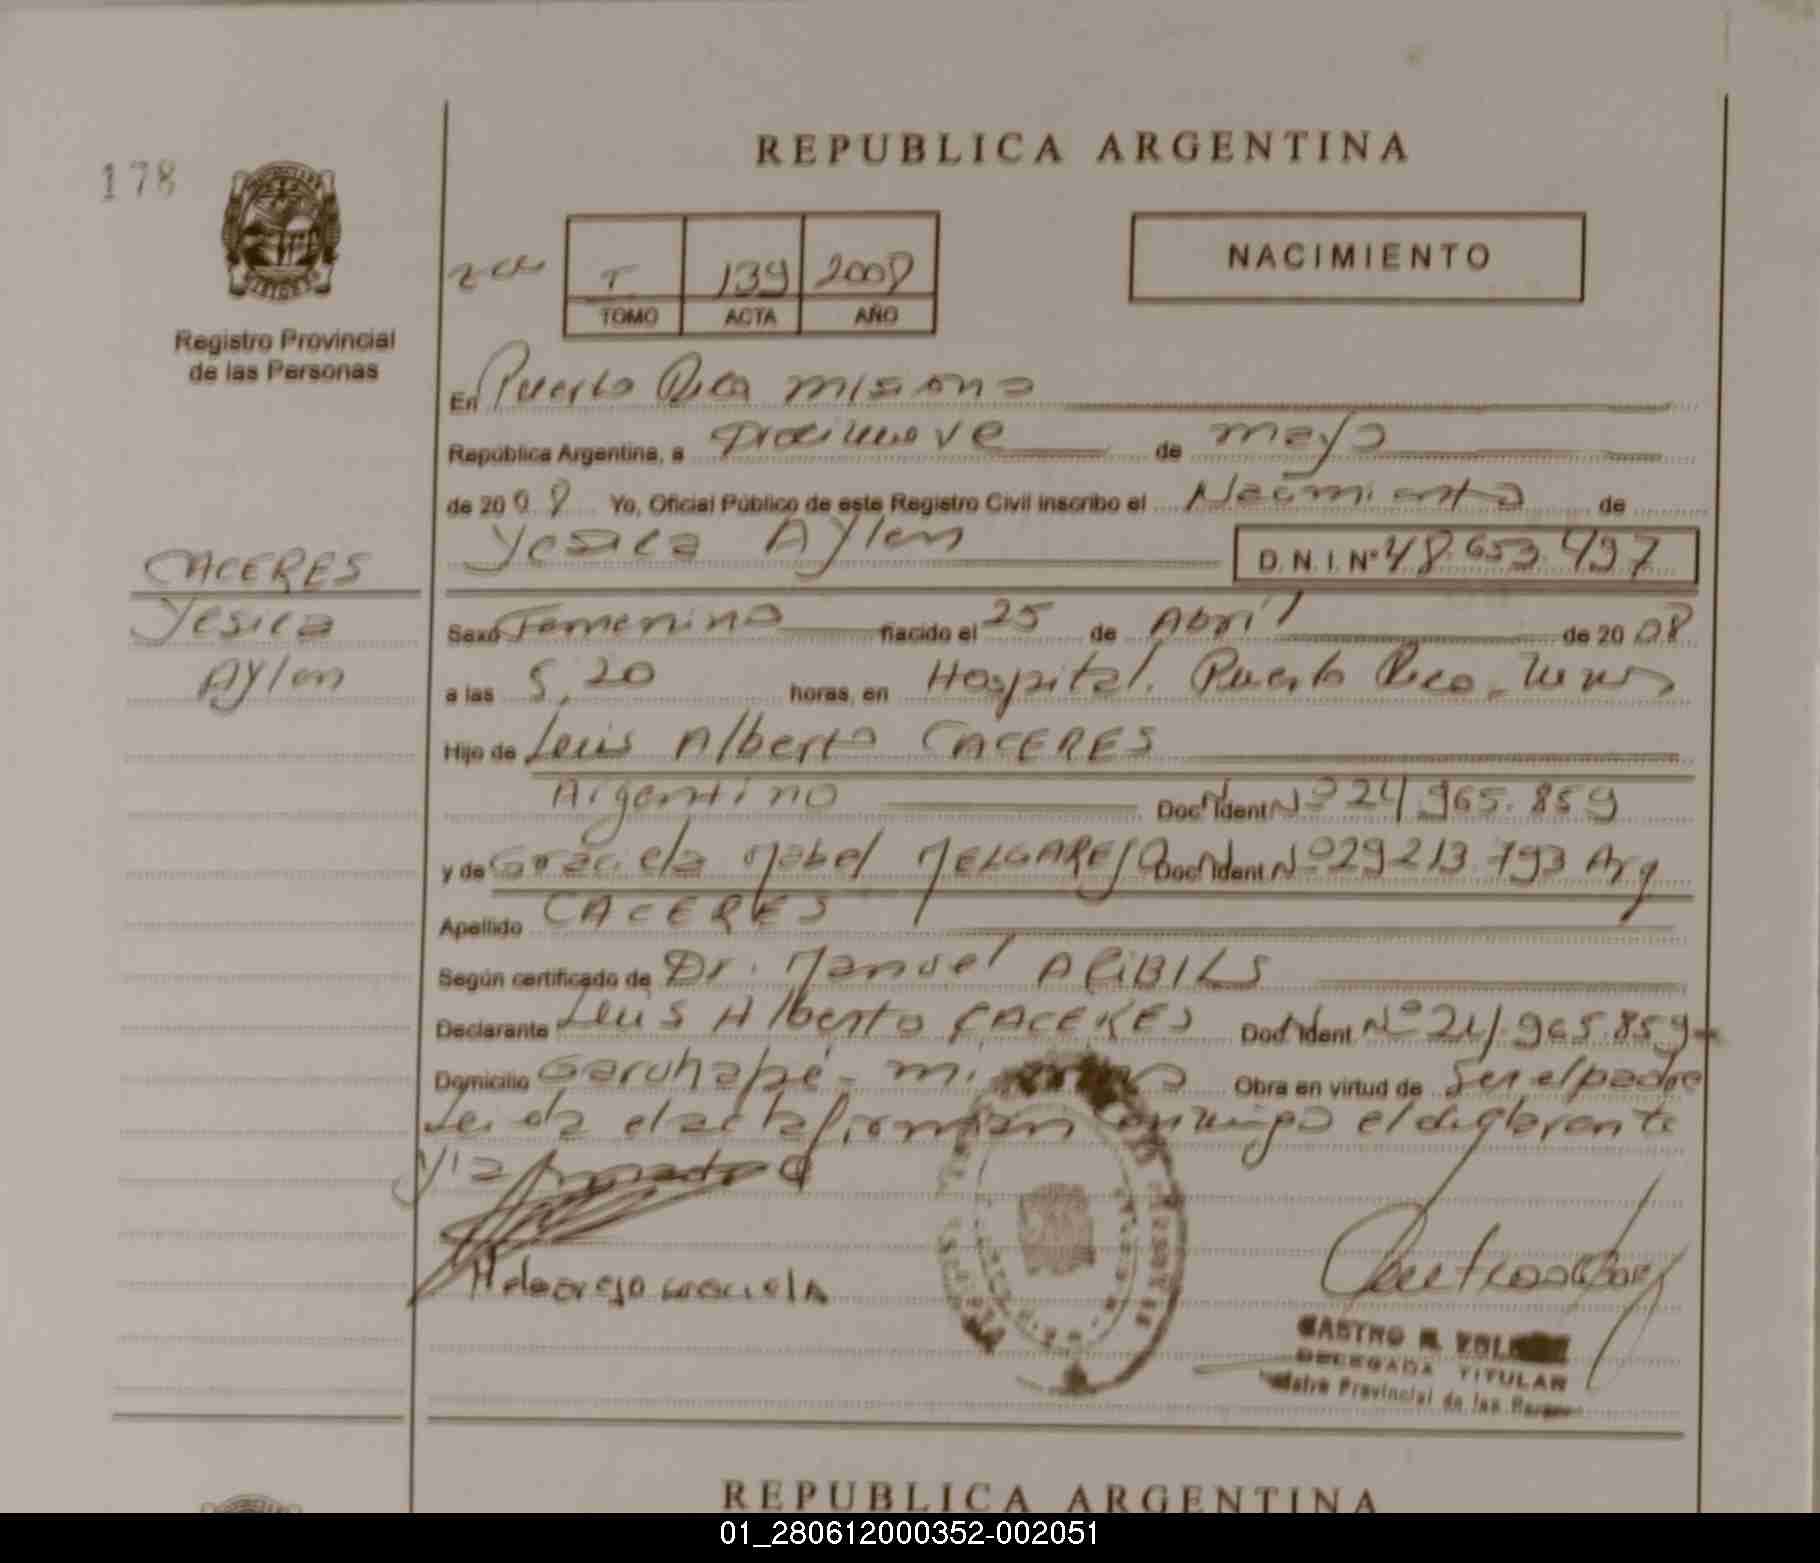 178
REPUBLICA ARGENTINA
NACIMIENTO
T 139 2008
TOMO ACTA AÑO
Registro Provincial
de las Personas
En Puerto Rico Misiones
República Argentina, a diecinueve de mayo
de 2008 Yo, Oficial Público de este Registro Civil inscribo el Nacimiento de
Yesica Aylen D.N.I. Nº 48.653.497
CACERES
Yesica
Aylen
Sexo Femenino nacido el 25 de Abril de 2008
a las 5,20 horas, en Hospital. Puerto Rico
Hijo de Luis Alberto CACERES
Argentino Doc. Ident Nº 24.965.859
y de Graciela Mabel MELGAREJO Doc. Ident Nº 29.213.793 Arg
Apellido CACERES
Según certificado de Dr. Manuel ARIBILS
Declarante Luis Alberto CACERES Doc. Ident Nº 24.965.859
Domicilio Garuhapé - Misiones Obra en virtud de Ser el padre
Leida el acta firman conmigo el declarante
y la madre
Melgarejo Graciela
CASTRO
DELEGADA TITULAR
Provincial de las
REPUBLICA ARGENTINA
01_280612000352-002051